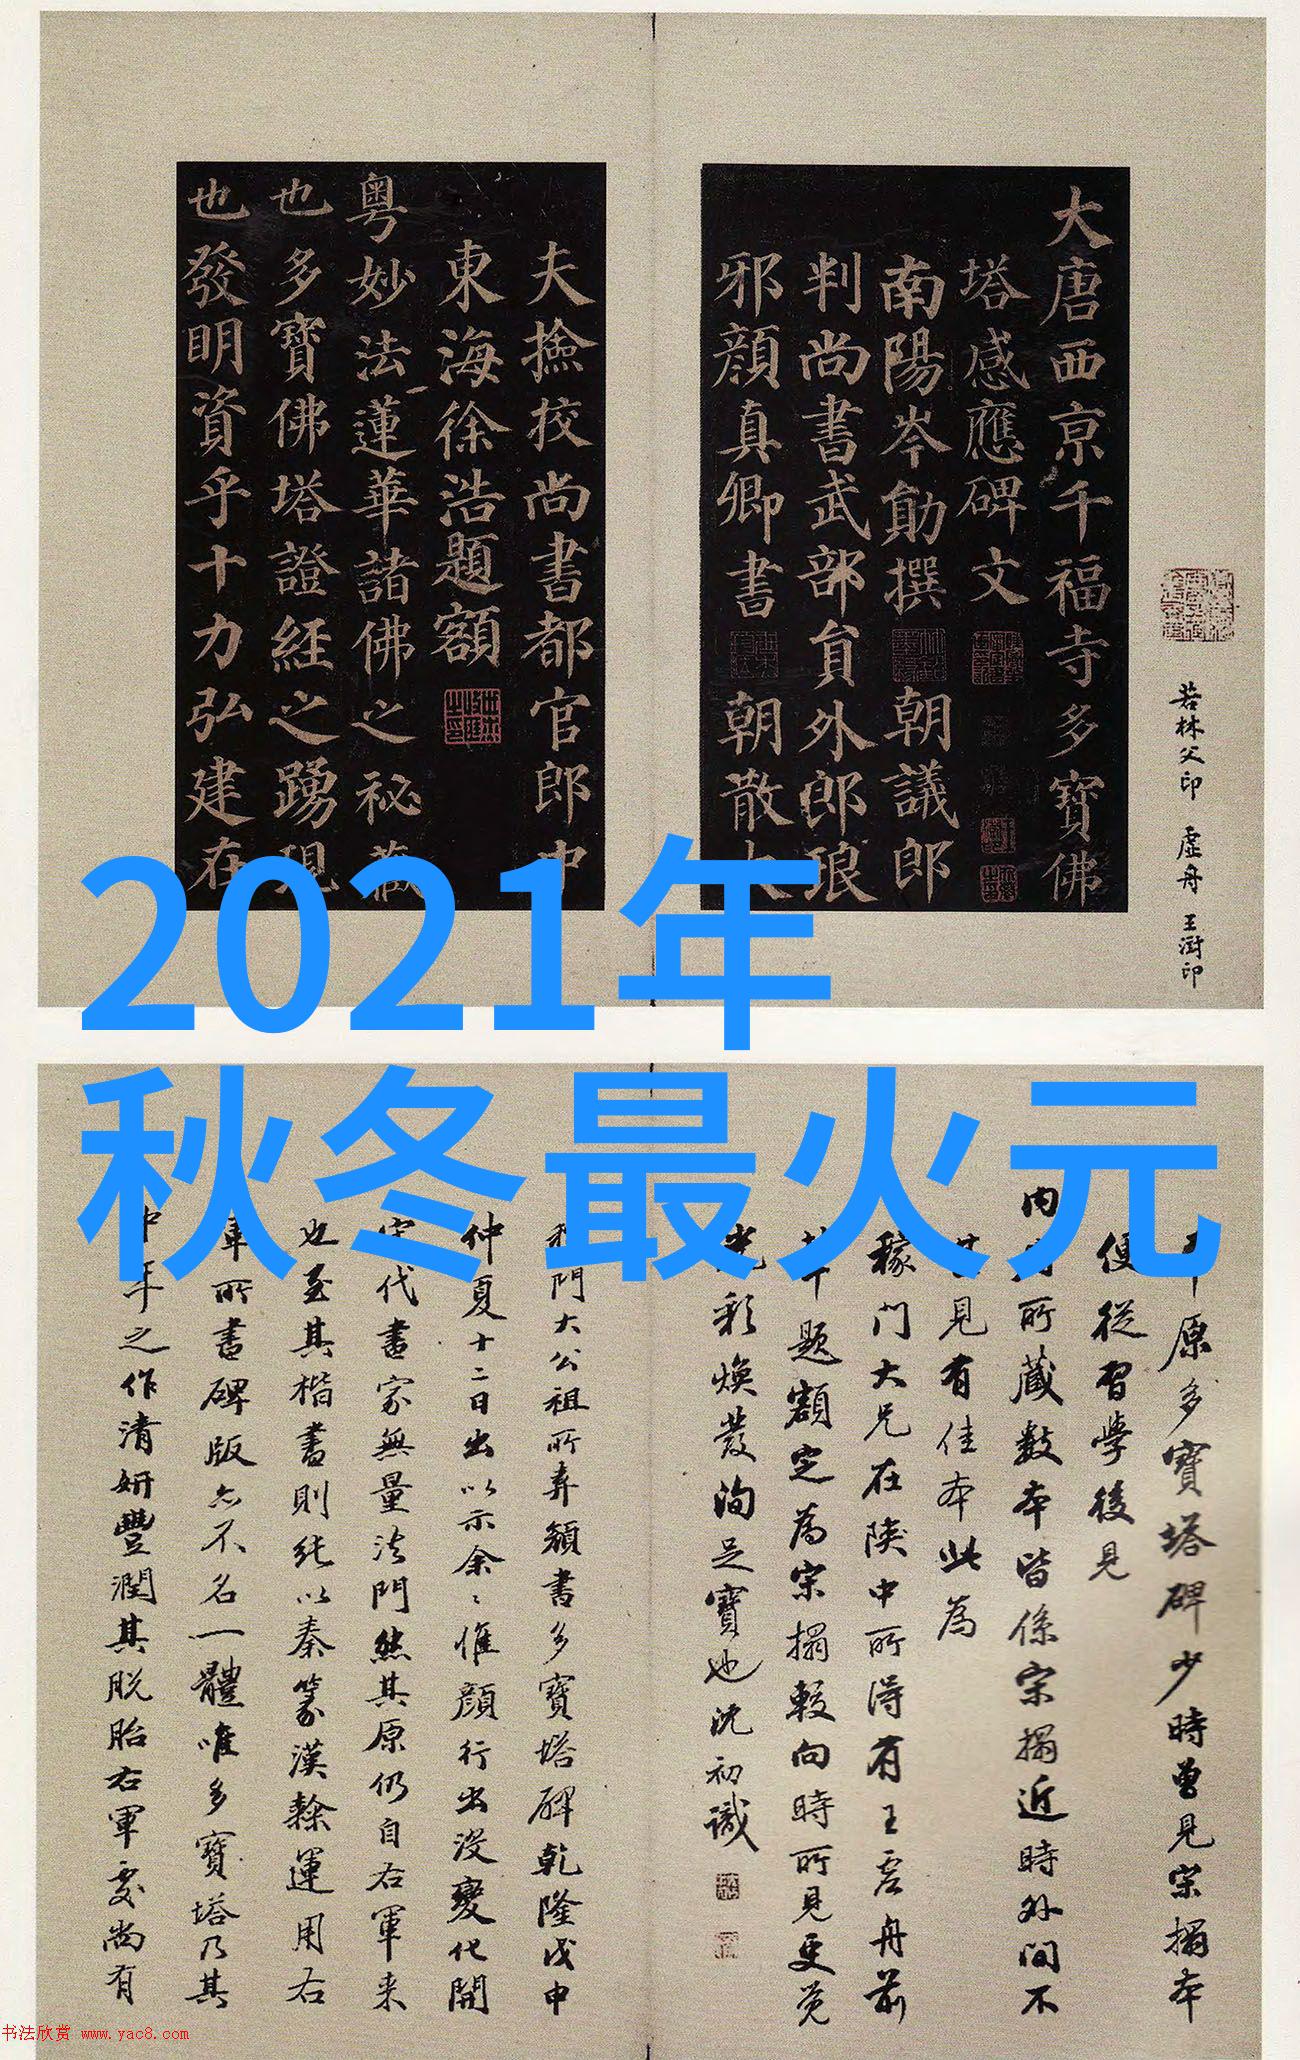 大唐西京千福寺多寶佛
塔感應碑文
南陽岑勛撰 朝議郎
判尚書武部員外郎琅
邪顏真卿書 朝散大
夫撿挍尚書都官郎中
東海徐浩題額
粵妙法蓮華諸佛之祕藏
也多寶佛塔證經之踴現
也發明資乎十力弘建在
若林父印 虛舟 王澍印
2021年
秋冬最火元
原多寶塔碑少時曾見宋搨本
便從習學後見
内府所藏數本皆係宋搨近時外間不
見有佳本此為
稼門大兄在陝中所得有王虛舟前
題額定為宋搨較向時所見更覺
光彩煥發洵足寶也沈初識
稼門大公祖所弆顏書多寶塔碑乾隆戊申
仲夏十二日出以示余〻惟顏行出沒變化開
宋代書家無量法門然其原仍自右軍来
也至其楷書則純以秦篆漢隸運用右
軍所書碑版亦不名一體唯多寶塔乃其
中年之作清妍豐潤其脫胎右軍處尚有
书法欣赏 www.yac8.com